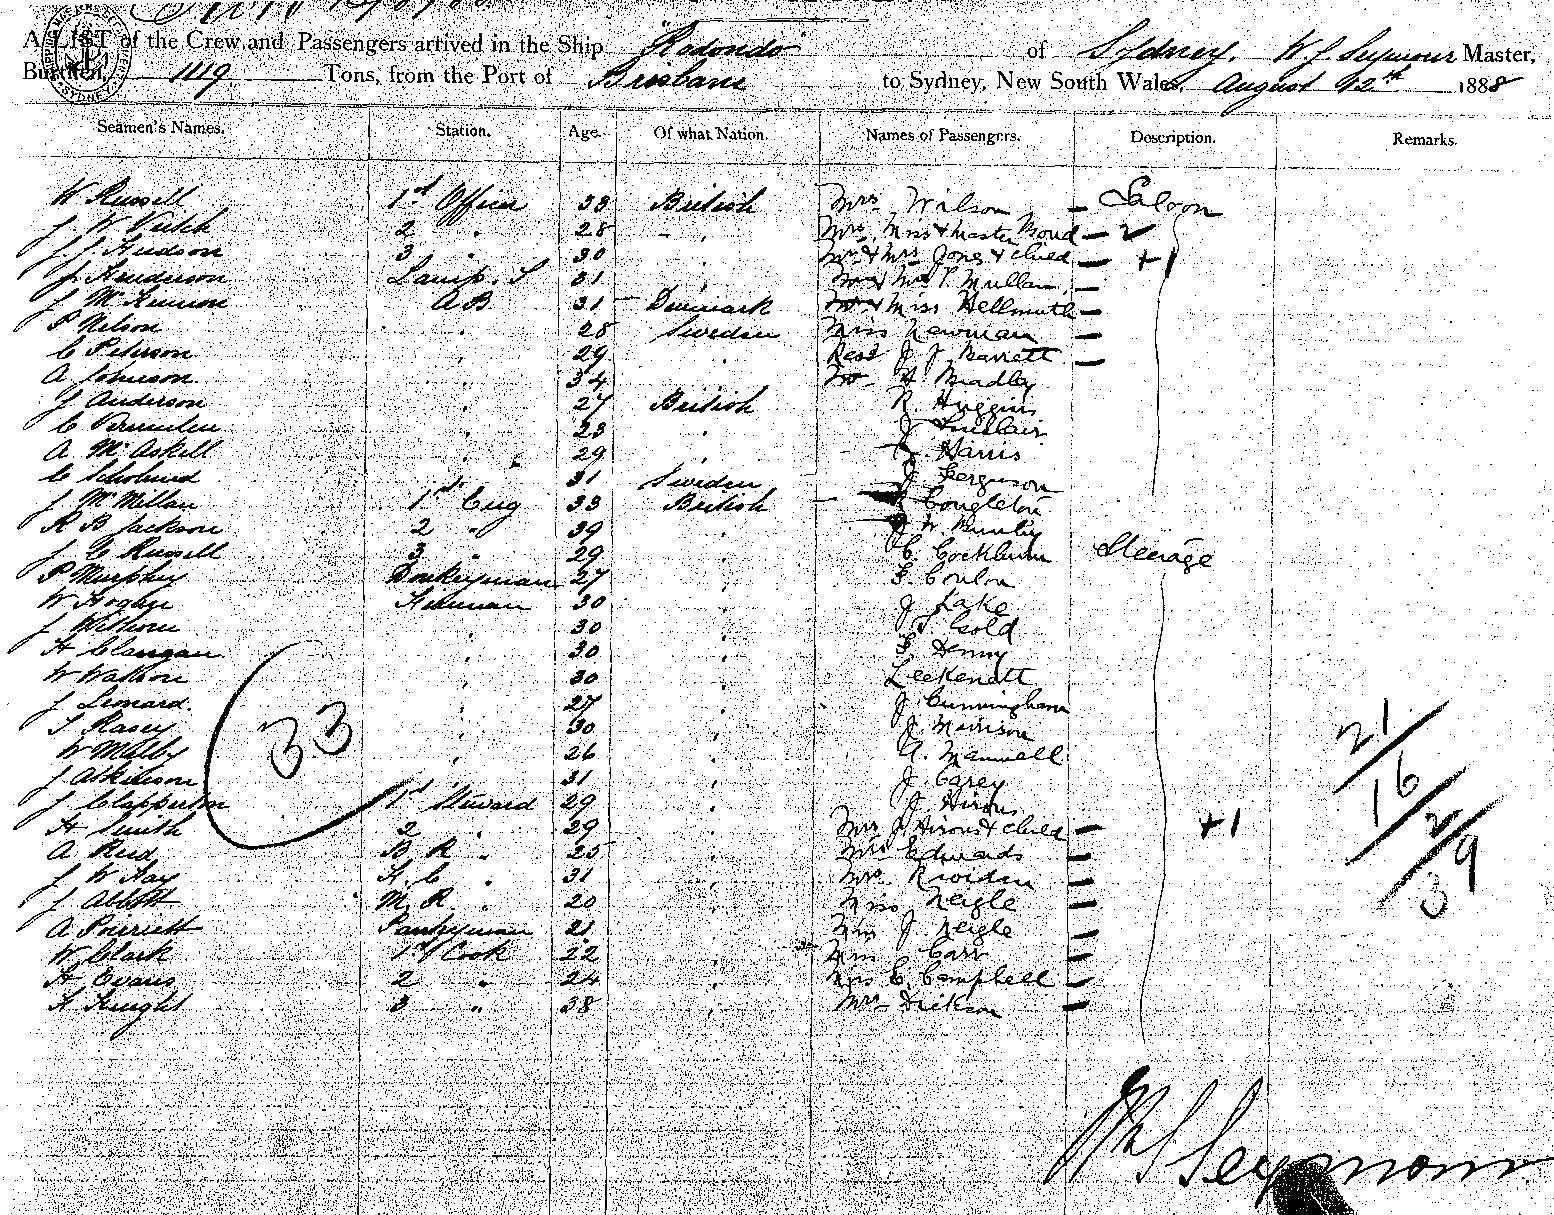 A LIST of the Crew and Passengers arrived in the Ship "Rodondo" of Sydney, W J Seymour Master,
Burthen, 1119 Tons, from the Port of Brisbane to Sydney, New South Wales, August 12th 1888
Seamen's Names. Station. Age. Of what Nation. Names of Passengers. Description. Remarks.
W Russell 1st Officer 33 British Mrs Wilson - Saloon
J. W. 2 " 28 " Mrs, Miss & Master Boud - 2
J. J. Hudson 3 " 30 Mr & Mrs Jones & Child - +1
J. Henderson Lamp. T 31 Mrs P. Mullan -
J McKinnon AB 31 Denmark Miss Hellmuth -
P Nelson " 28 Sweden Miss Newman -
C Peterson " 29 " Revd J J Barrett -
A Johnson " 34 " H Bradley
J Anderson " 27 British R. Huggins
C " 23 " J Sinclair
A McAskell " 29 " Harris
C " 31 Sweden J Ferguson
J McMillan 1st Eng 33 British Congleton
R B Jackson 2 " 39 J W
J C Russell 3 " 29 C. Cockburn Steerage
P Murphy Donkeyman 27 Conlon
W Hogan Fireman 30 J Lake
J 30 Gold
H 30 Denny
W Watson 30
J Leonard. 27 J Cunningham
T Kasey 30 J Morrison
W 26 A. Maxwell
J Atkinson 31 J. Carey
J Clapperton 1st Steward 29 J Hirons
H Smith 2 " 29 Mrs J Hirons & Child - +1
A Reid B R " 25 Mrs Edwards -
J W Hay F. C " 31 Mrs -
J Abbott M. R. " 20 Miss Neigle -
A Pantryman 21 Miss J Neigle -
W Clark 1st Cook 22 Carr -
H Evans 2 " 24 Miss C Campbell -
H Knight 3 " 38 Mrs Dickson -
33
21/16/2/39
W J Seymour